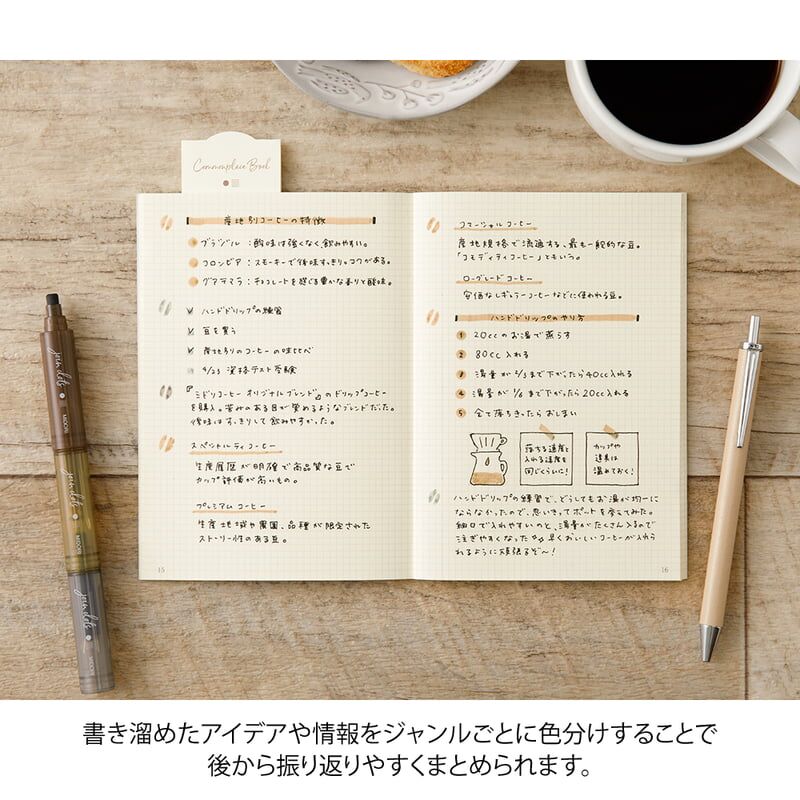 Commonplace Book
産地別コーヒーの特徴
ブラジル：酸味は強くなく飲みやすい。
コロンビア：スモーキーで後味すっきり、コクがある。
グアテマラ：チョコレートを感じる豊かな香りと酸味。
ハンドドリップの練習
豆を買う
産地別のコーヒーの味比べ
4/23 資格テスト受験
『ミドリコーヒー オリジナルブレンド』のドリップコーヒー
を購入。深みのある目が覚めるようなブレンドだった。
後味はすっきりして飲みやすかった。
スペシャルティコーヒー
生産履歴が明確で高品質な豆で
カップ評価が高いもの。
プレミアムコーヒー
生産地域や農園、品種が限定された
ストーリー性のある豆。
15
コマーシャルコーヒー
産地規格で流通する、最も一般的な豆。
「コモディティコーヒー」ともいう。
ローグレードコーヒー
安価なレギュラーコーヒーなどに使われる豆。
ハンドドリップのやり方
1 20ccのお湯で蒸らす
2 80cc入れる
3 湯量が2/3まで下がったら40cc入れる
4 湯量が まで下がったら20cc入れる
5 全て落ちきったらおしまい
落ちる速度と
入れる速度を
同じくらいに!
カップや
道具は
温めておく!
ハンドドリップの練習で、どうしてもお湯が均一に
ならなかったので、思いきってポットを変えてみた。
細口で入れやすいのと、湯量がたくさん入るので
注ぎやすくなった 早くおいしいコーヒーが入れら
れるように頑張るぞ〜!
16
join dots
MIDORI
join dots
MIDORI
join dots
MIDORI
書き溜めたアイデアや情報をジャンルごとに色分けすることで
後から振り返りやすくまとめられます。